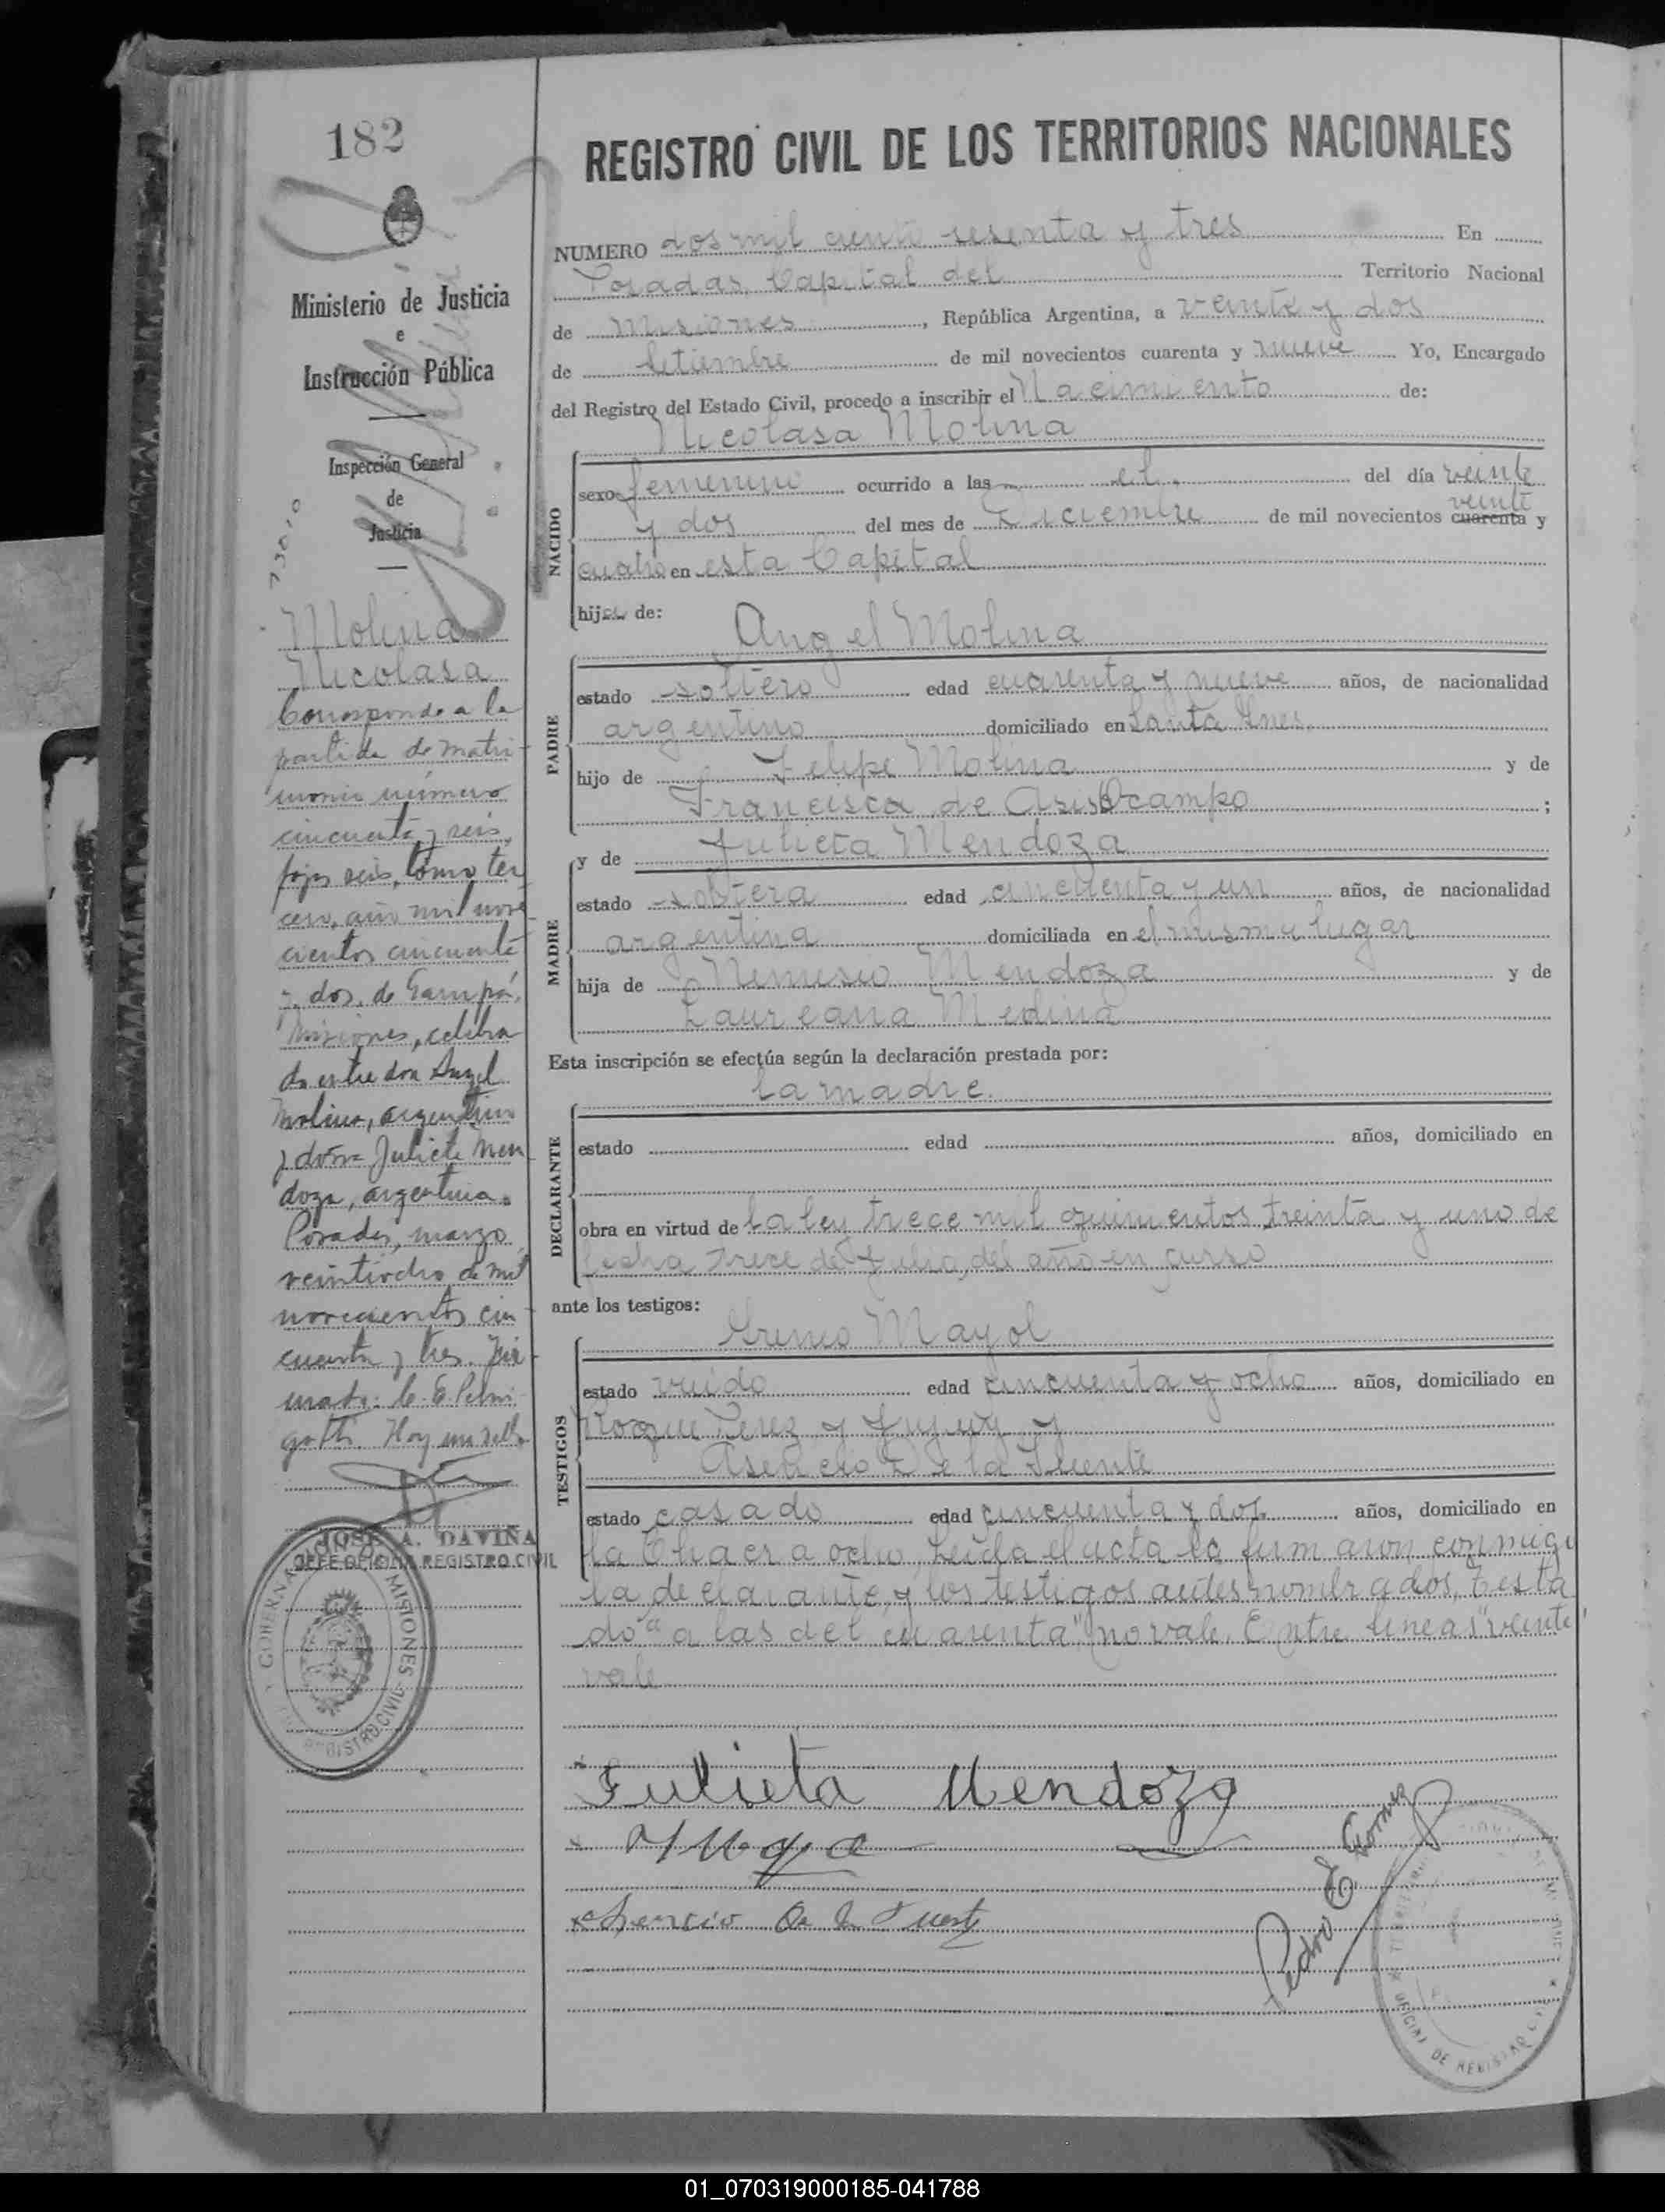 182
Ministerio de Justicia
e
Instrucción Pública
Inspección General
de
Justicia
Molina
Nicolasa
Corresponde a la
partida de matri-
monio número
cincuenta y seis,
fojas seis, tomo ter
cero, año mil nove
cientos cincuenta
y dos, de Garupá,
Misiones, celebra
do entre don Angel
Molina, argentino
y doña Julieta Men
doza, argentina.
Posadas, marzo
veintiocho de mil
novecientos cin
cuenta y tres. Fir
mado: C. E.
Hay un sello
JOSE A. DAVIÑA
JEFE OFICINA REGISTRO CIVIL
MISIONES
REGISTRO CIVIL
REGISTRO CIVIL DE LOS TERRITORIOS NACIONALES
NUMERO dos mil ciento sesenta y tres En
Posadas, Capital del Territorio Nacional
de Misiones, República Argentina, a veinte y dos
de Setiembre de mil novecientos cuarenta y nueve Yo, Encargado
del Registro del Estado Civil, procedo a inscribir el Nacimiento de:
Nicolasa Molina
NACIDO
sexo femenino ocurrido a las el del día veinte
veinte
y dos del mes de Diciembre de mil novecientos cuarenta y
cuatro en esta Capital
hija de:
Angel Molina
PADRE
estado soltero edad cuarenta y nueve años, de nacionalidad
argentino domiciliado en Santa Ines
hijo de Felipe Molina y de
Francisca de Asis Ocampo;
y de Julieta Mendoza
MADRE
estado soltera edad cincuenta y un años, de nacionalidad
argentina domiciliada en el mismo lugar
hija de Nemesio Mendoza y de
Laureana Medina
Esta inscripción se efectúa según la declaración prestada por:
la madre.
DECLARANTE
estado edad años, domiciliado en
obra en virtud de la ley trece mil quinientos treinta y uno de
fecha trece de Julio, del año en curso
ante los testigos:
Mayol
TESTIGOS
estado viudo edad cincuenta y ocho años, domiciliado en
Roque Perez y Jujuy y
Asencio De la Fuente
estado casado edad cincuenta y dos años, domiciliado en
la Chacra ocho, Leida el acta la firmaron conmigo
la declarante, y los testigos antes nombrados, Testa
do "a las del cuarenta" no vale. Entre lineas "veinte"
vale
Julieta Mendoza
Asencio De la Fuente
Pedro E Gomez
OFICINA DE REGISTRO CIVIL
01_070319000185-041788